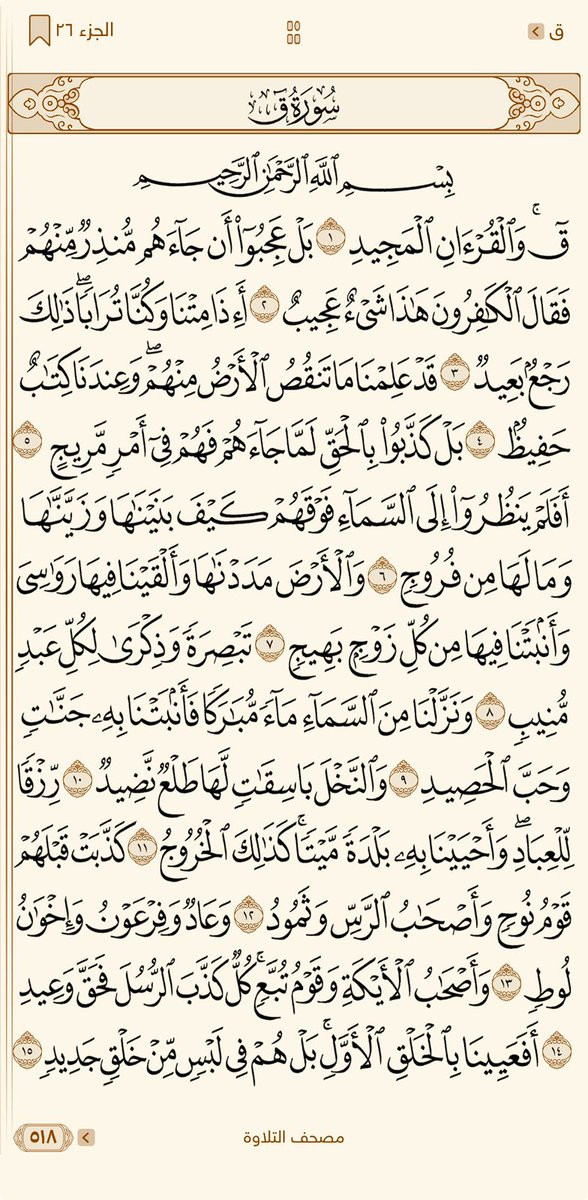 ق
الجزء ٢٦
سُورَةُ قٓ
بِسْمِ ٱللَّهِ ٱلرَّحْمَٰنِ ٱلرَّحِيمِ
قٓۚ وَٱلْقُرْءَانِ ٱلْمَجِيدِ ١ بَلْ عَجِبُوٓا۟ أَن جَآءَهُم مُّنذِرٌ مِّنْهُمْ
فَقَالَ ٱلْكَٰفِرُونَ هَٰذَا شَىْءٌ عَجِيبٌ ٢ أَءِذَا مِتْنَا وَكُنَّا تُرَابًاۖ ذَٰلِكَ
رَجْعٌۢ بَعِيدٌ ٣ قَدْ عَلِمْنَا مَا تَنقُصُ ٱلْأَرْضُ مِنْهُمْۖ وَعِندَنَا كِتَٰبٌ
حَفِيظٌۢ ٤ بَلْ كَذَّبُوا۟ بِٱلْحَقِّ لَمَّا جَآءَهُمْ فَهُمْ فِىٓ أَمْرٍ مَّرِيجٍ ٥
أَفَلَمْ يَنظُرُوٓا۟ إِلَى ٱلسَّمَآءِ فَوْقَهُمْ كَيْفَ بَنَيْنَٰهَا وَزَيَّنَّٰهَا
وَمَا لَهَا مِن فُرُوجٍ ٦ وَٱلْأَرْضَ مَدَدْنَٰهَا وَأَلْقَيْنَا فِيهَا رَوَٰسِىَ
وَأَنۢبَتْنَا فِيهَا مِن كُلِّ زَوْجٍۭ بَهِيجٍ ٧ تَبْصِرَةً وَذِكْرَىٰ لِكُلِّ عَبْدٍ
مُّنِيبٍ ٨ وَنَزَّلْنَا مِنَ ٱلسَّمَآءِ مَآءً مُّبَٰرَكًا فَأَنۢبَتْنَا بِهِۦ جَنَّٰتٍ
وَحَبَّ ٱلْحَصِيدِ ٩ وَٱلنَّخْلَ بَاسِقَٰتٍ لَّهَا طَلْعٌ نَّضِيدٌ ١٠ رِّزْقًا
لِّلْعِبَادِۖ وَأَحْيَيْنَا بِهِۦ بَلْدَةً مَّيْتًاۚ كَذَٰلِكَ ٱلْخُرُوجُ ١١ كَذَّبَتْ قَبْلَهُمْ
قَوْمُ نُوحٍ وَأَصْحَٰبُ ٱلرَّسِّ وَثَمُودُ ١٢ وَعَادٌ وَفِرْعَوْنُ وَإِخْوَٰنُ
لُوطٍ ١٣ وَأَصْحَٰبُ ٱلْأَيْكَةِ وَقَوْمُ تُبَّعٍۚ كُلٌّ كَذَّبَ ٱلرُّسُلَ فَحَقَّ وَعِيدِ
١٤ أَفَعَيِينَا بِٱلْخَلْقِ ٱلْأَوَّلِۚ بَلْ هُمْ فِى لَبْسٍ مِّنْ خَلْقٍ جَدِيدٍ ١٥
مصحف التلاوة
٥١٨